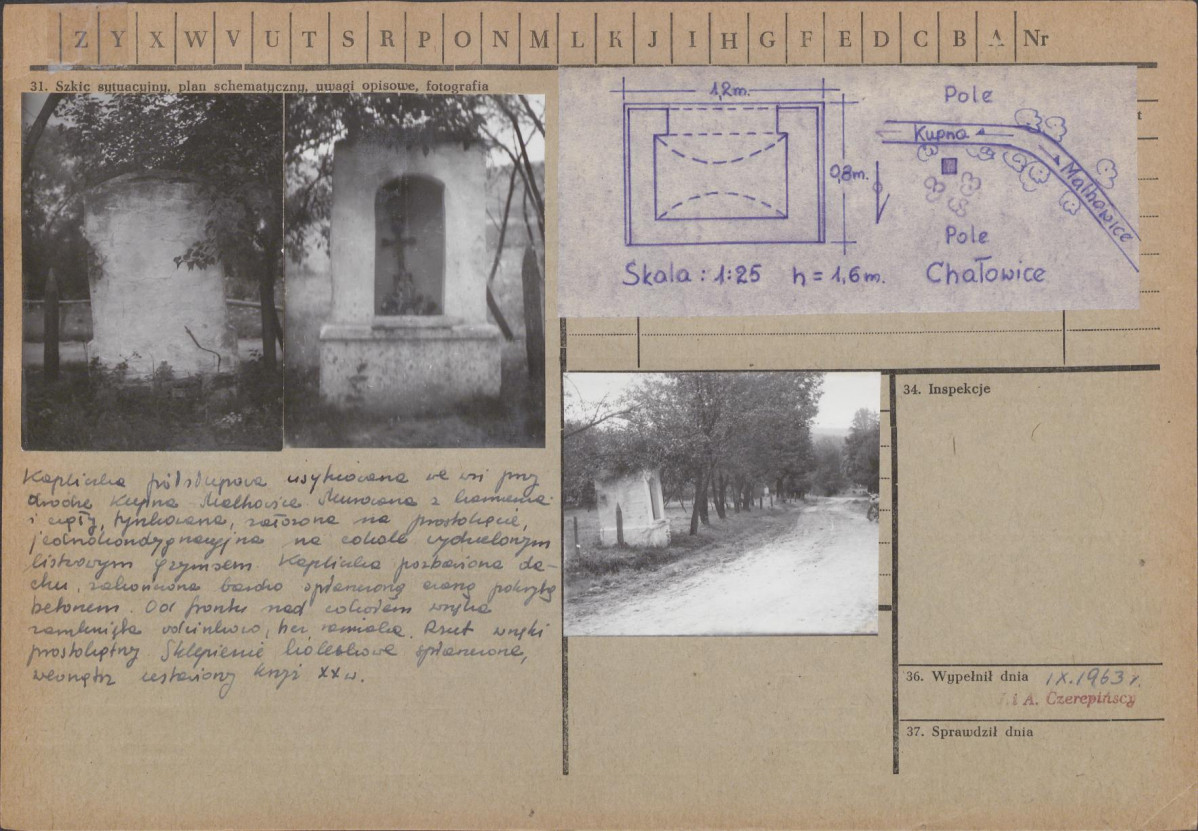 Z Y X W V U T S R P O N M L K J I H G F E D C B A Nr
31. Szkic sytuacyjny, plan schematyczny, uwagi opisowe, fotografia
1,2m.
0,8m.
Skala : 1:25 h = 1,6m.
Pole
Kupna
Malhowice
Pole
Chałowice
Kapliczka półsłupowa usytuowana we wsi przy
drodze Kupna Malhowice Murowana z kamienia
i cegły, tynkowana, założona na prostokącie,
jednokondygnacyjna na cokole wydzielonym
listwowym gzymsem. Kapliczka pozbawiona da-
chu, zakończona bardzo spłaszczoną
betonem. Od frontu nad cokołem wnęka
zamknięta odcinkowo, bez Rzut wnęki
prostokątny Sklepienie kolebkowe spłaszczone,
wewnątrz ustawiony krzyż XX w.
34. Inspekcje
36. Wypełnił dnia IX.1963 r.
i A. Czerepińscy
37. Sprawdził dnia